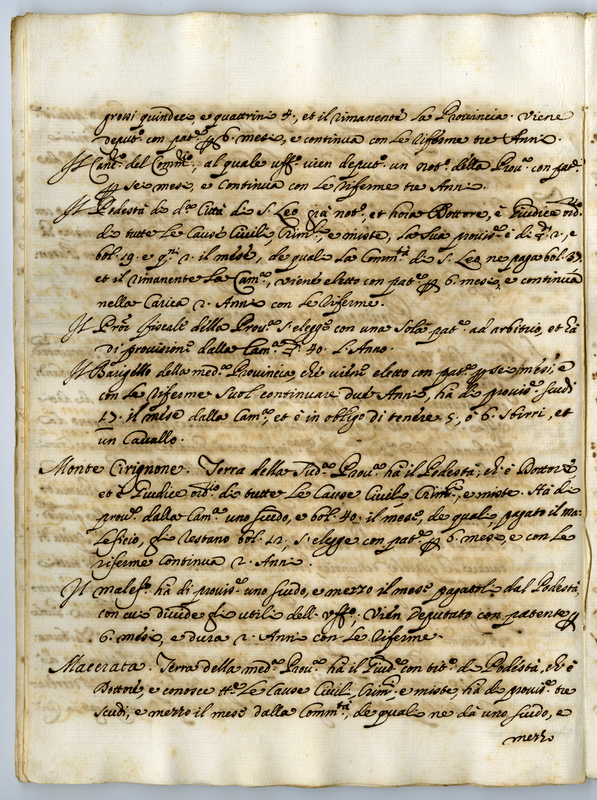 grossi quindeci, e quattrini 4., et il rimanente la Provincia. Viene
deput.º con pat.º 6. mesi, e continua con le rifferme tre Anni.
Il Canc.º del Comm.º, al quale uff.º vien deput.º un not.º della Prov.ª con pat.º
se mesi, e continua con le riferme tre Anni.
Il Podestà di d.ª Città di S. Leo già not.º, et hora Dottore, è Giudice ord.º
di tutte le Cause Civili, Crim.li, e miste, la sua provis.º è di 2., e
bol. 19. e q.ni 2. il mese, de quali la Comm.tà di S. Leo ne paga bol. 37.
et il rimanente la Cam.ª, viene eletto con pat.º 6. mesi, e continua
nella Carica 2. Anni con le riferme.
Il Pro.r fiscale della Prov.ª s'elegge con una sola pat.º ad arbitrio, et hà
di provisione dalla Cam.ª 40. l'Anno.
Il Barigello della med.ª Provincia che viene eletto con pat.º se mesi, e
con le riferme suol continuare due Anni, hà di provis.º scudi
17. il mese dalla Cam.ª, et è in obligo di tenere 5., ò 6. sbirri, et
un Cavallo.
Monte Cirignone. Terra della sud.ª Prov.ª hà il Podestà, che è Dottore
et è Giudice ord.rio di tutte le Cause Civili, Crim.li, e miste. Hà di
prov.º dalla Cam.ª uno scudo, e bol. 40. il mese, de quali pagato il ma:
leficio, gli restano bol. 12, s'elegge con pat.º 6. mesi, e con le
riferme continua 2. Anni.
Il malef.º hà di provis.º uno scudo, e mezzo il mese pagatoli dal Podestà,
con cui divide gli utili dell'uff.º; Vien Deputato con patente
6. mesi, e dura 2. Anni con le riferme.
Macerata. Terra della med.ª Prov.ª hà il Giud.º con tit.º di Podestà, che è
Dottore, e conosce tt.º le Cause Civili, Crim.li e miste, hà di provis.º tre
scudi, e mezzo il mese dalla Comm.tà, de quali ne dà uno scudo, e
mezzo